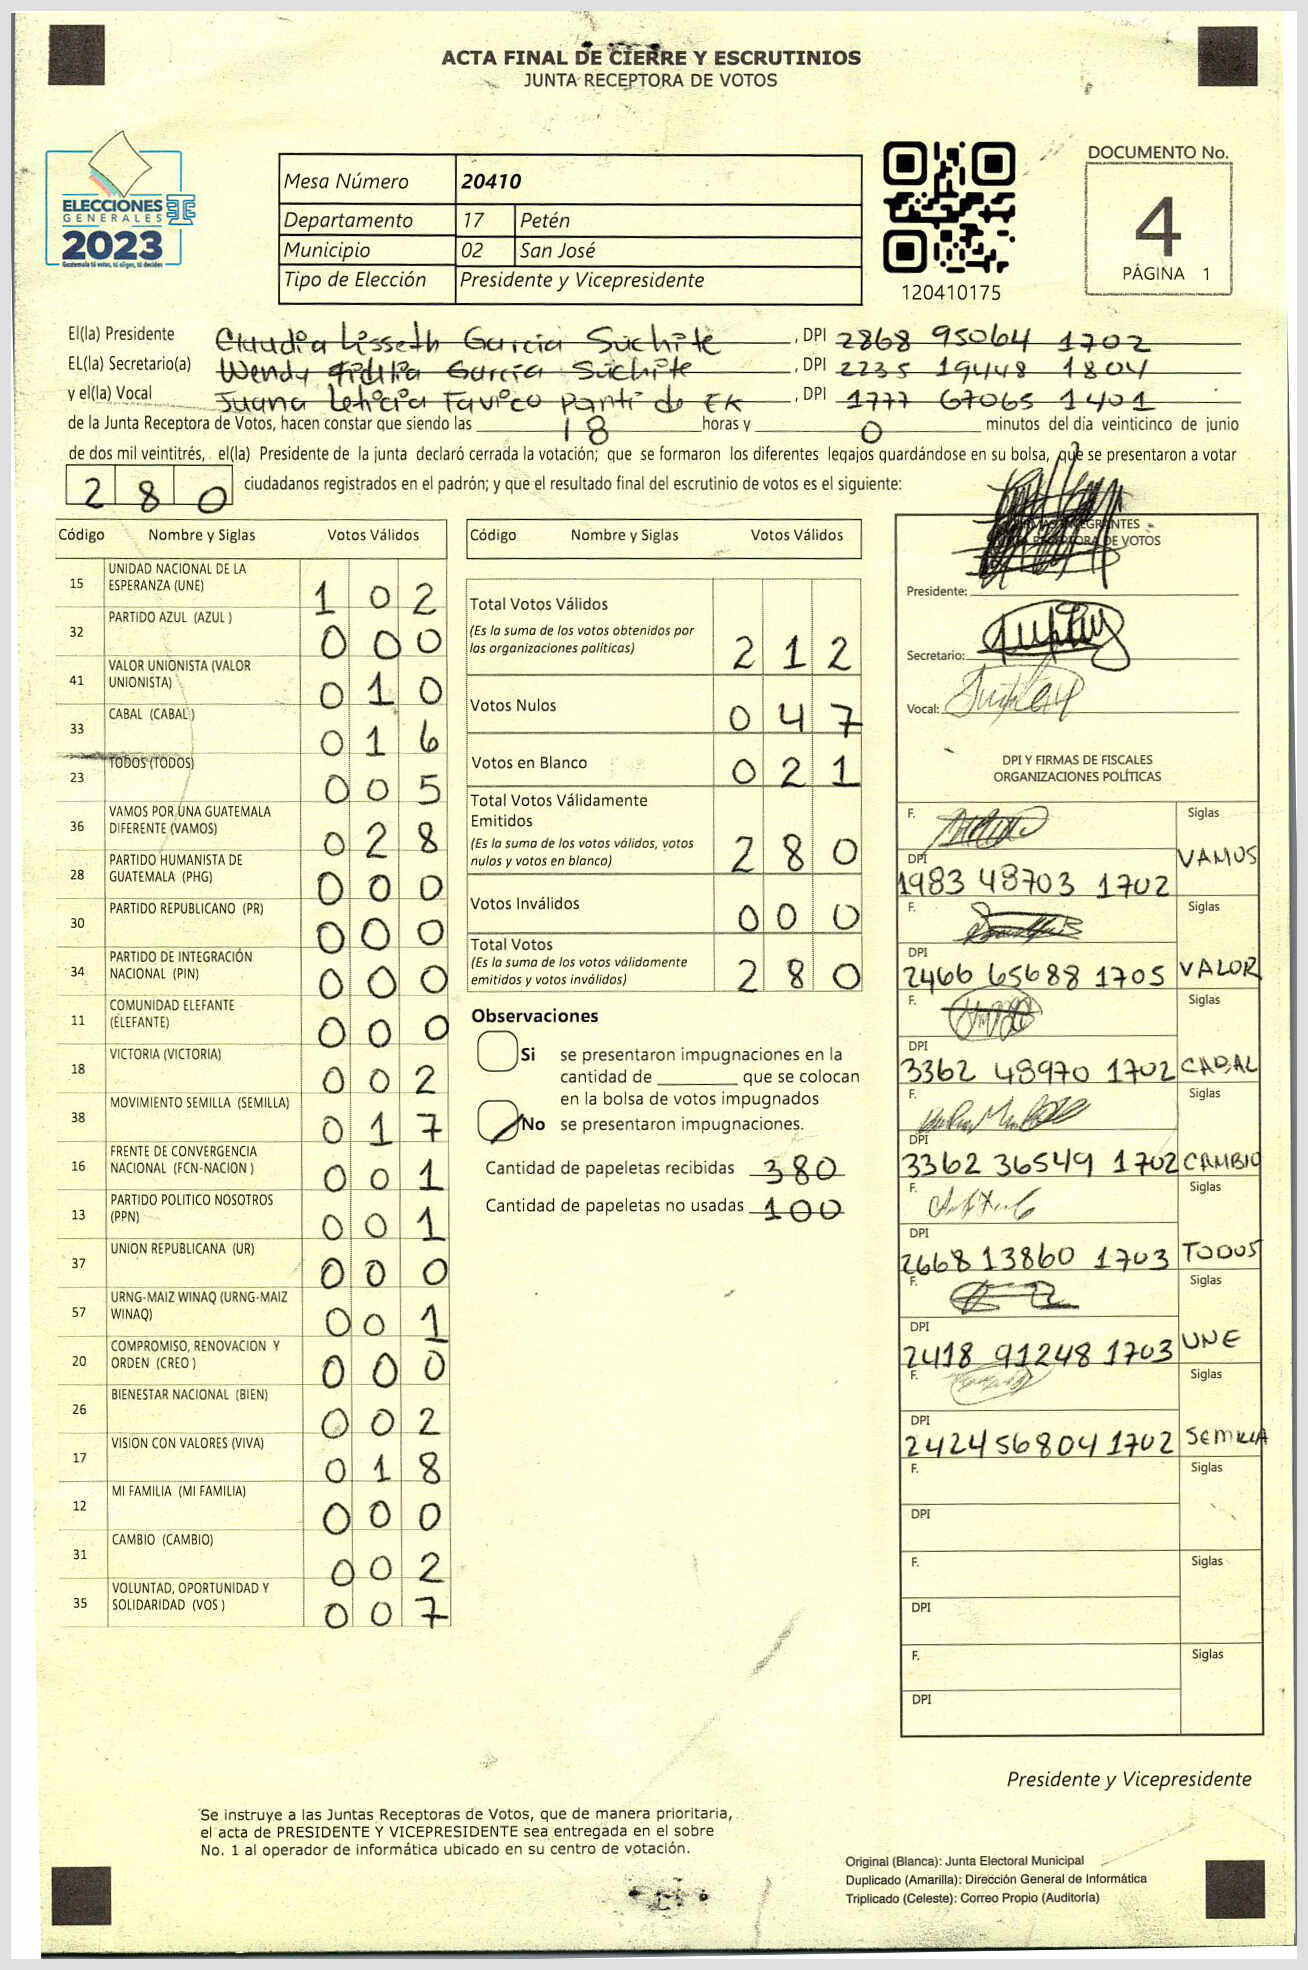 ACTA FINAL DE CIERRE Y ESCRUTINIOS
JUNTA RECEPTORA DE VOTOS
ELECCIONES
GENERALES
2023
Guatemala tú votas, tú eliges, tú decides
Mesa Número 20410
Departamento 17 Petén
Municipio 02 San José
Tipo de Elección Presidente y Vicepresidente
120410175
DOCUMENTO No.
4
PÁGINA 1
El(la) Presidente Claudia Lisseth Garcia Súchite, DPI 2868 95064 1702
EL(la) Secretario(a) Wendy García Súchite, DPI 2235 19448 1804
y el(la) Vocal Juana Leticia Tavico Panti de EK, DPI 1777 67065 1401
de la Junta Receptora de Votos, hacen constar que siendo las 18 horas y 0 minutos del día veinticinco de junio
de dos mil veintitrés, el(la) Presidente de la junta declaró cerrada la votación; que se formaron los diferentes legajos guardándose en su bolsa, que se presentaron a votar
280 ciudadanos registrados en el padrón; y que el resultado final del escrutinio de votos es el siguiente:
Código Nombre y Siglas Votos Válidos
15 UNIDAD NACIONAL DE LA ESPERANZA (UNE) 1 0 2
32 PARTIDO AZUL (AZUL ) 0 0 0
41 VALOR UNIONISTA (VALOR UNIONISTA) 0 1 0
33 CABAL (CABAL ) 0 1 6
23 TODOS (TODOS) 0 0 5
36 VAMOS POR UNA GUATEMALA DIFERENTE (VAMOS) 0 2 8
28 PARTIDO HUMANISTA DE GUATEMALA (PHG) 0 0 0
30 PARTIDO REPUBLICANO (PR) 0 0 0
34 PARTIDO DE INTEGRACIÓN NACIONAL (PIN) 0 0 0
11 COMUNIDAD ELEFANTE (ELEFANTE) 0 0 0
18 VICTORIA (VICTORIA) 0 0 2
38 MOVIMIENTO SEMILLA (SEMILLA) 0 1 7
16 FRENTE DE CONVERGENCIA NACIONAL (FCN-NACION ) 0 0 1
13 PARTIDO POLITICO NOSOTROS (PPN) 0 0 1
37 UNION REPUBLICANA (UR) 0 0 0
57 URNG-MAIZ WINAQ (URNG-MAIZ WINAQ) 0 0 1
20 COMPROMISO, RENOVACION Y ORDEN (CREO ) 0 0 0
26 BIENESTAR NACIONAL (BIEN) 0 0 2
17 VISION CON VALORES (VIVA) 0 1 8
12 MI FAMILIA (MI FAMILIA) 0 0 0
31 CAMBIO (CAMBIO) 0 0 2
35 VOLUNTAD, OPORTUNIDAD Y SOLIDARIDAD (VOS ) 0 0 7
Código Nombre y Siglas Votos Válidos
Total Votos Válidos
(Es la suma de los votos obtenidos por
las organizaciones políticas) 2 1 2
Votos Nulos 0 4 7
Votos en Blanco 0 2 1
Total Votos Válidamente
Emitidos
(Es la suma de los votos válidos, votos
nulos y votos en blanco) 2 8 0
Votos Inválidos 0 0 0
Total Votos
(Es la suma de los votos válidamente
emitidos y votos inválidos) 2 8 0
Observaciones
Si se presentaron impugnaciones en la
cantidad de ________ que se colocan
en la bolsa de votos impugnados
No se presentaron impugnaciones.
Cantidad de papeletas recibidas 380
Cantidad de papeletas no usadas 100
FIRMAS INTEGRANTES
JUNTA RECEPTORA DE VOTOS
Presidente:
Secretario:
Vocal:
DPI Y FIRMAS DE FISCALES
ORGANIZACIONES POLÍTICAS
F. Siglas
DPI 1983 48703 1702 VAMOS
F. Siglas
DPI 2466 65688 1705 VALOR
F. Siglas
DPI 3362 48970 1702 CABAL
F. Siglas
DPI 3362 36549 1702 CAMBIO
F. Siglas
DPI 2668 13860 1703 TODOS
F. Siglas
DPI 2418 91248 1703 UNE
F. Siglas
DPI 2424 56804 1702 SEMILLA
F. Siglas
DPI
F. Siglas
DPI
F. Siglas
DPI
Presidente y Vicepresidente
Se instruye a las Juntas Receptoras de Votos, que de manera prioritaria,
el acta de PRESIDENTE Y VICEPRESIDENTE sea entregada en el sobre
No. 1 al operador de informática ubicado en su centro de votación.
Original (Blanca): Junta Electoral Municipal
Duplicado (Amarilla): Dirección General de Informática
Triplicado (Celeste): Correo Propio (Auditoría)